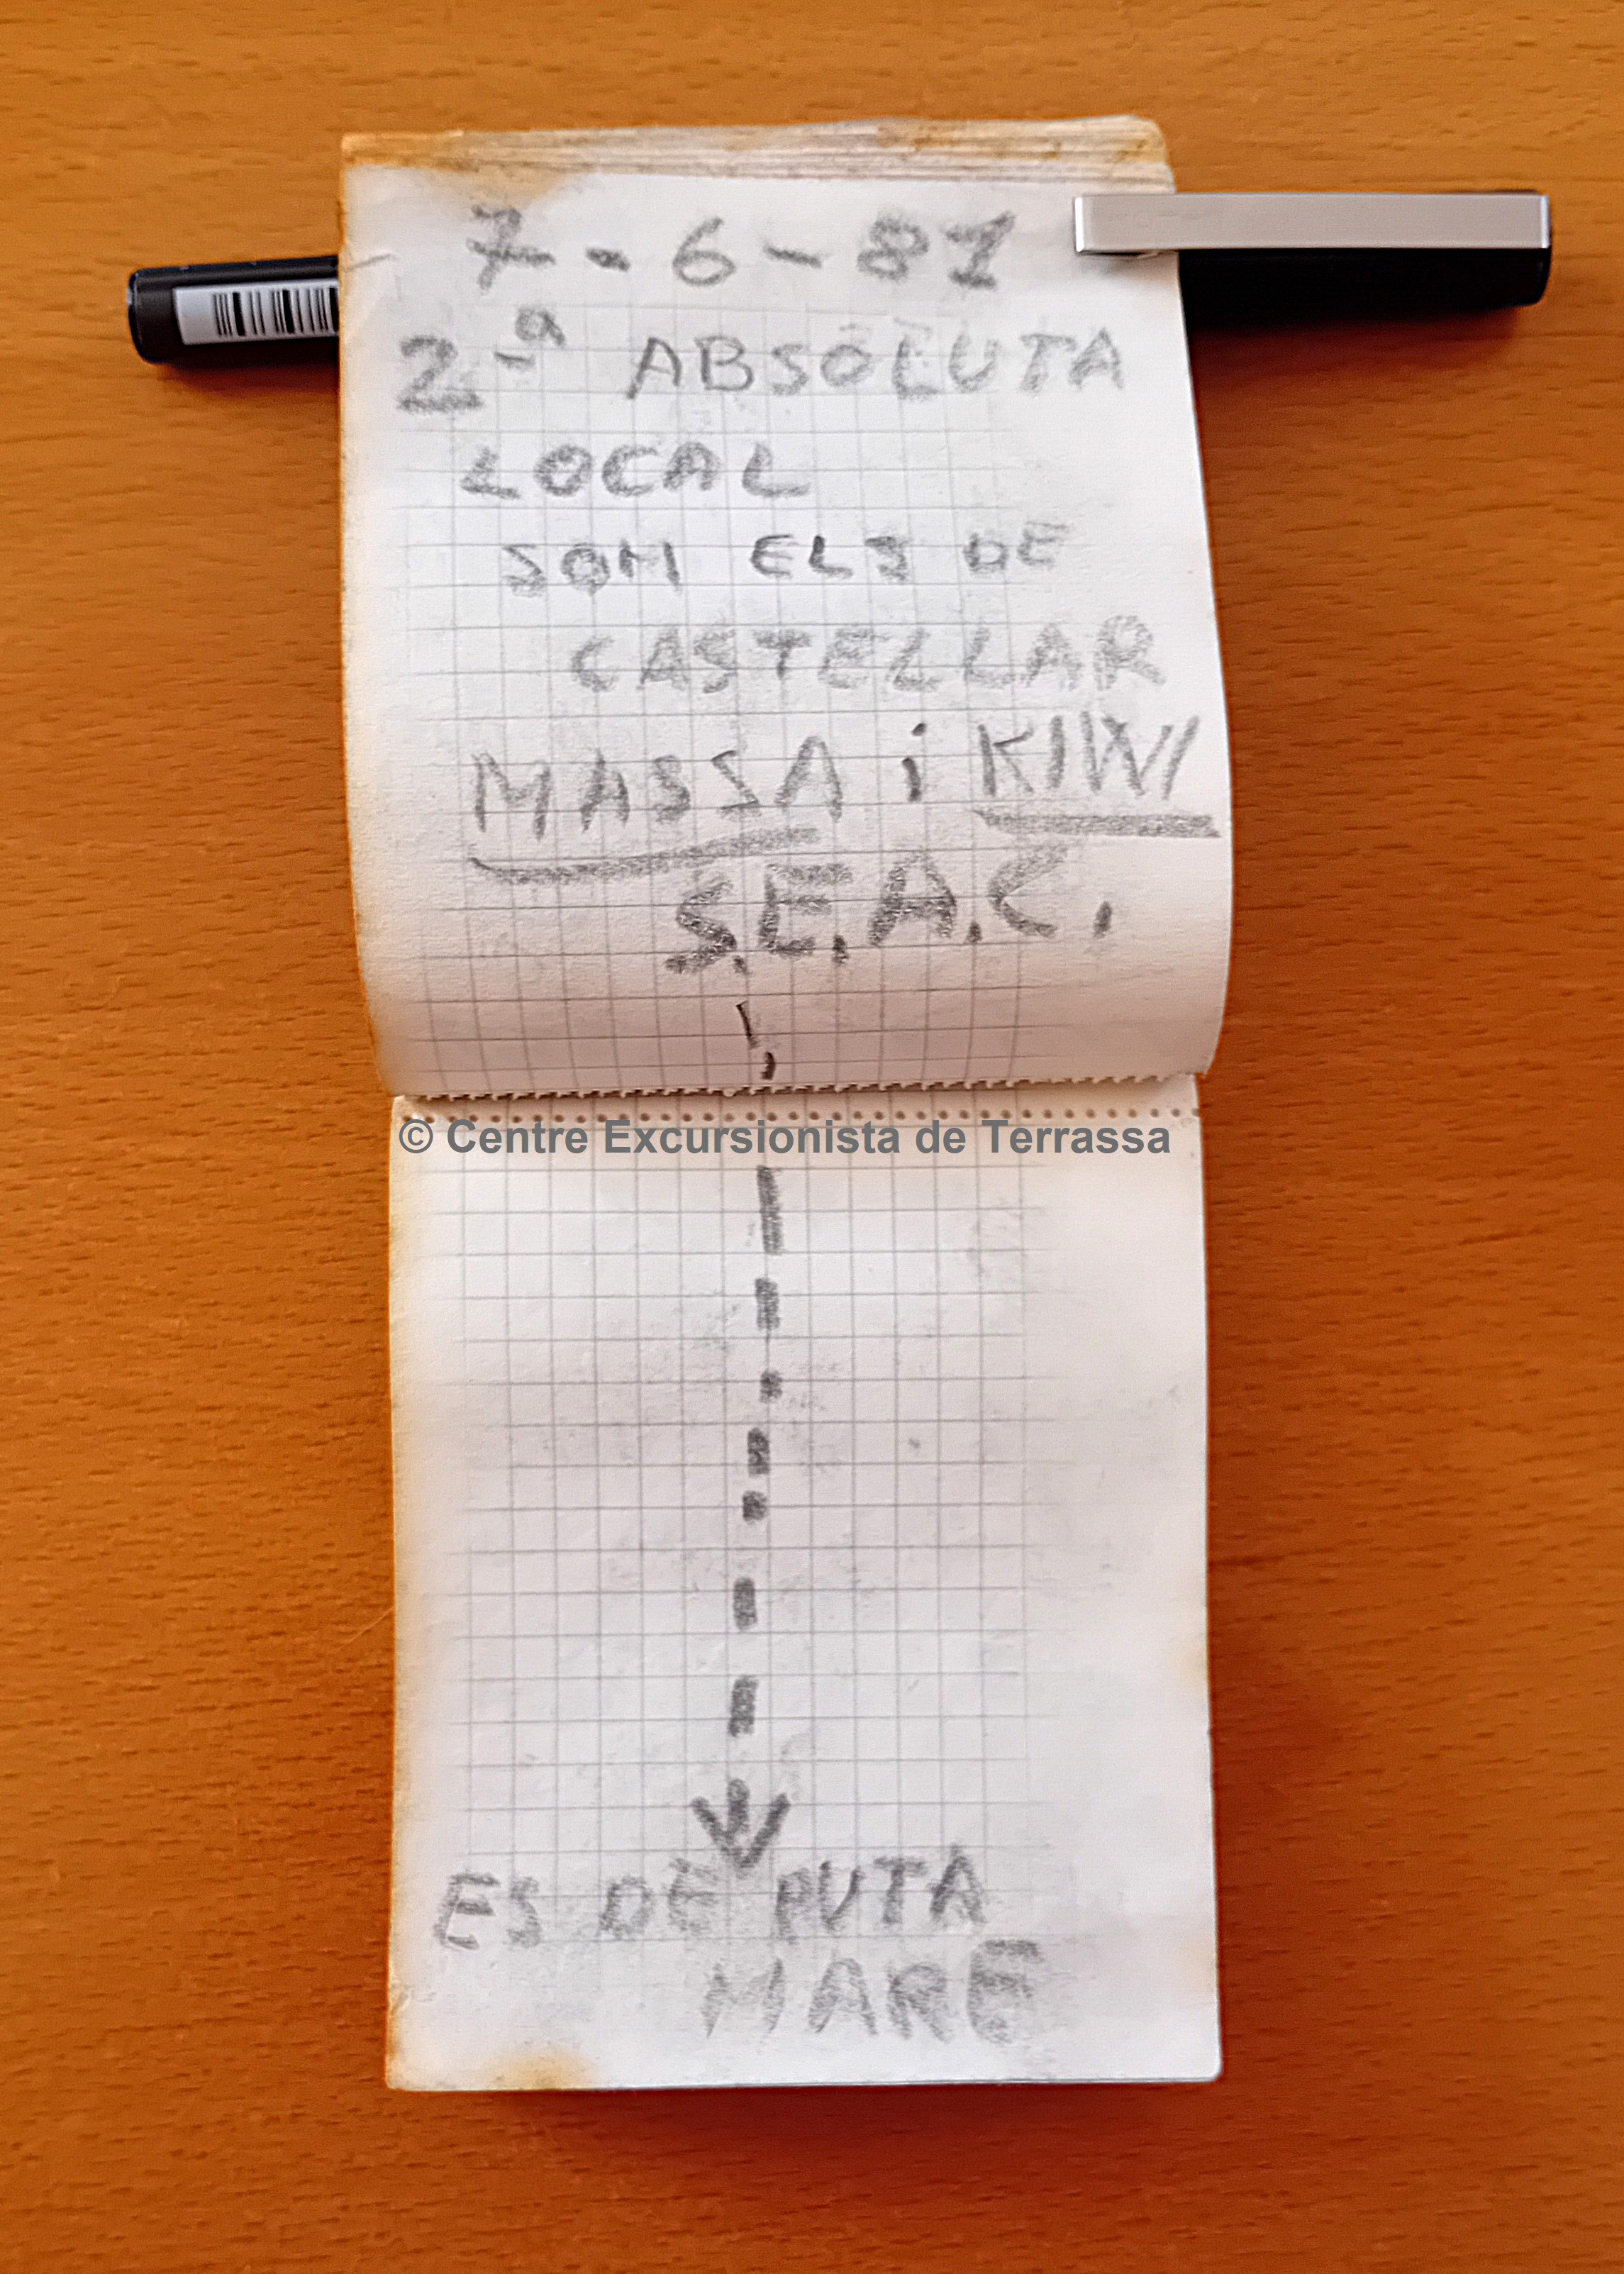 7-6-81
2ª ABSOLUTA
LOCAL
SOM ELS DE
CASTELLAR
MASSA i KIWI
S.E.A.C.
© Centre Excursionista de Terrassa
ES DE PUTA
MARE